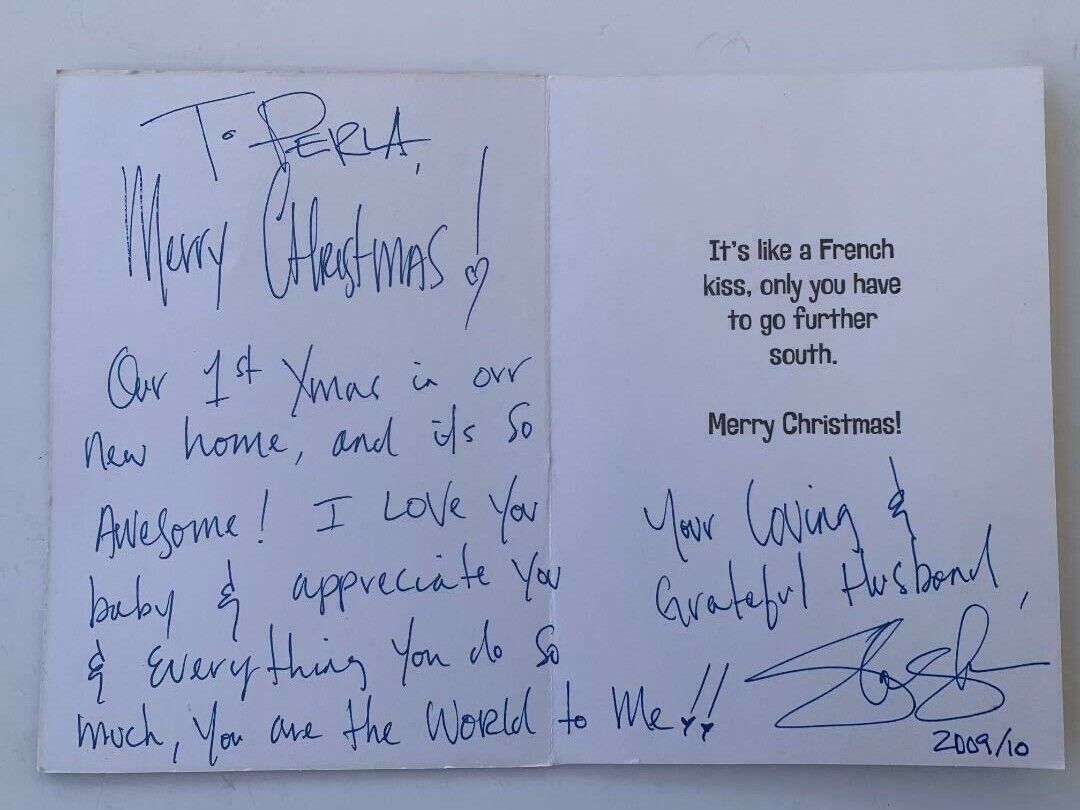 To PERLA,
Merry CHristmAS!
Our 1st Xmas in our
new home, and it's So
AweSome! I LOVe You
baby & appreciate You
& Everything You do So
much, You are the WORLD to Me!!
It's like a French
kiss, only you have
to go further
south.
Merry Christmas!
Your loving &
Grateful Husband,
Slash
2009/10